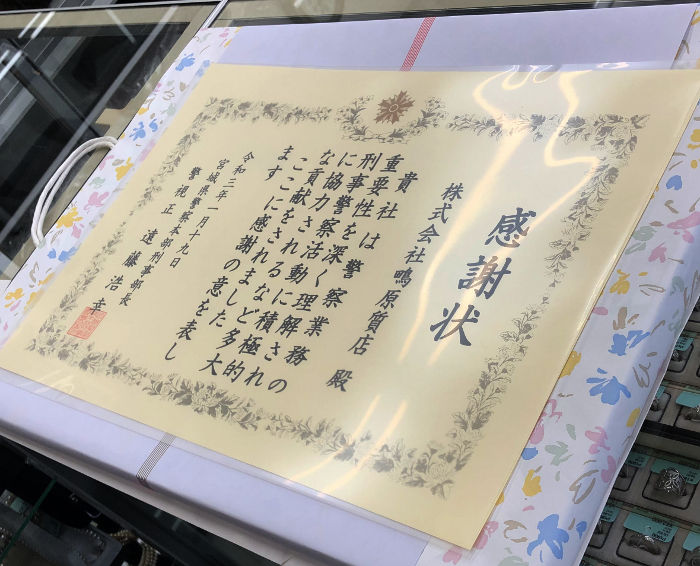 感謝状
株式会社鴫原質店 殿
貴社は警察業務の
重要性を深く理解され
刑事警察活動に積極的
に協力されるなど多大
な貢献をされました
ここに感謝の意を表し
ます
令和三年一月十九日
宮城県警察本部刑事部長
警視正 遠藤浩幸